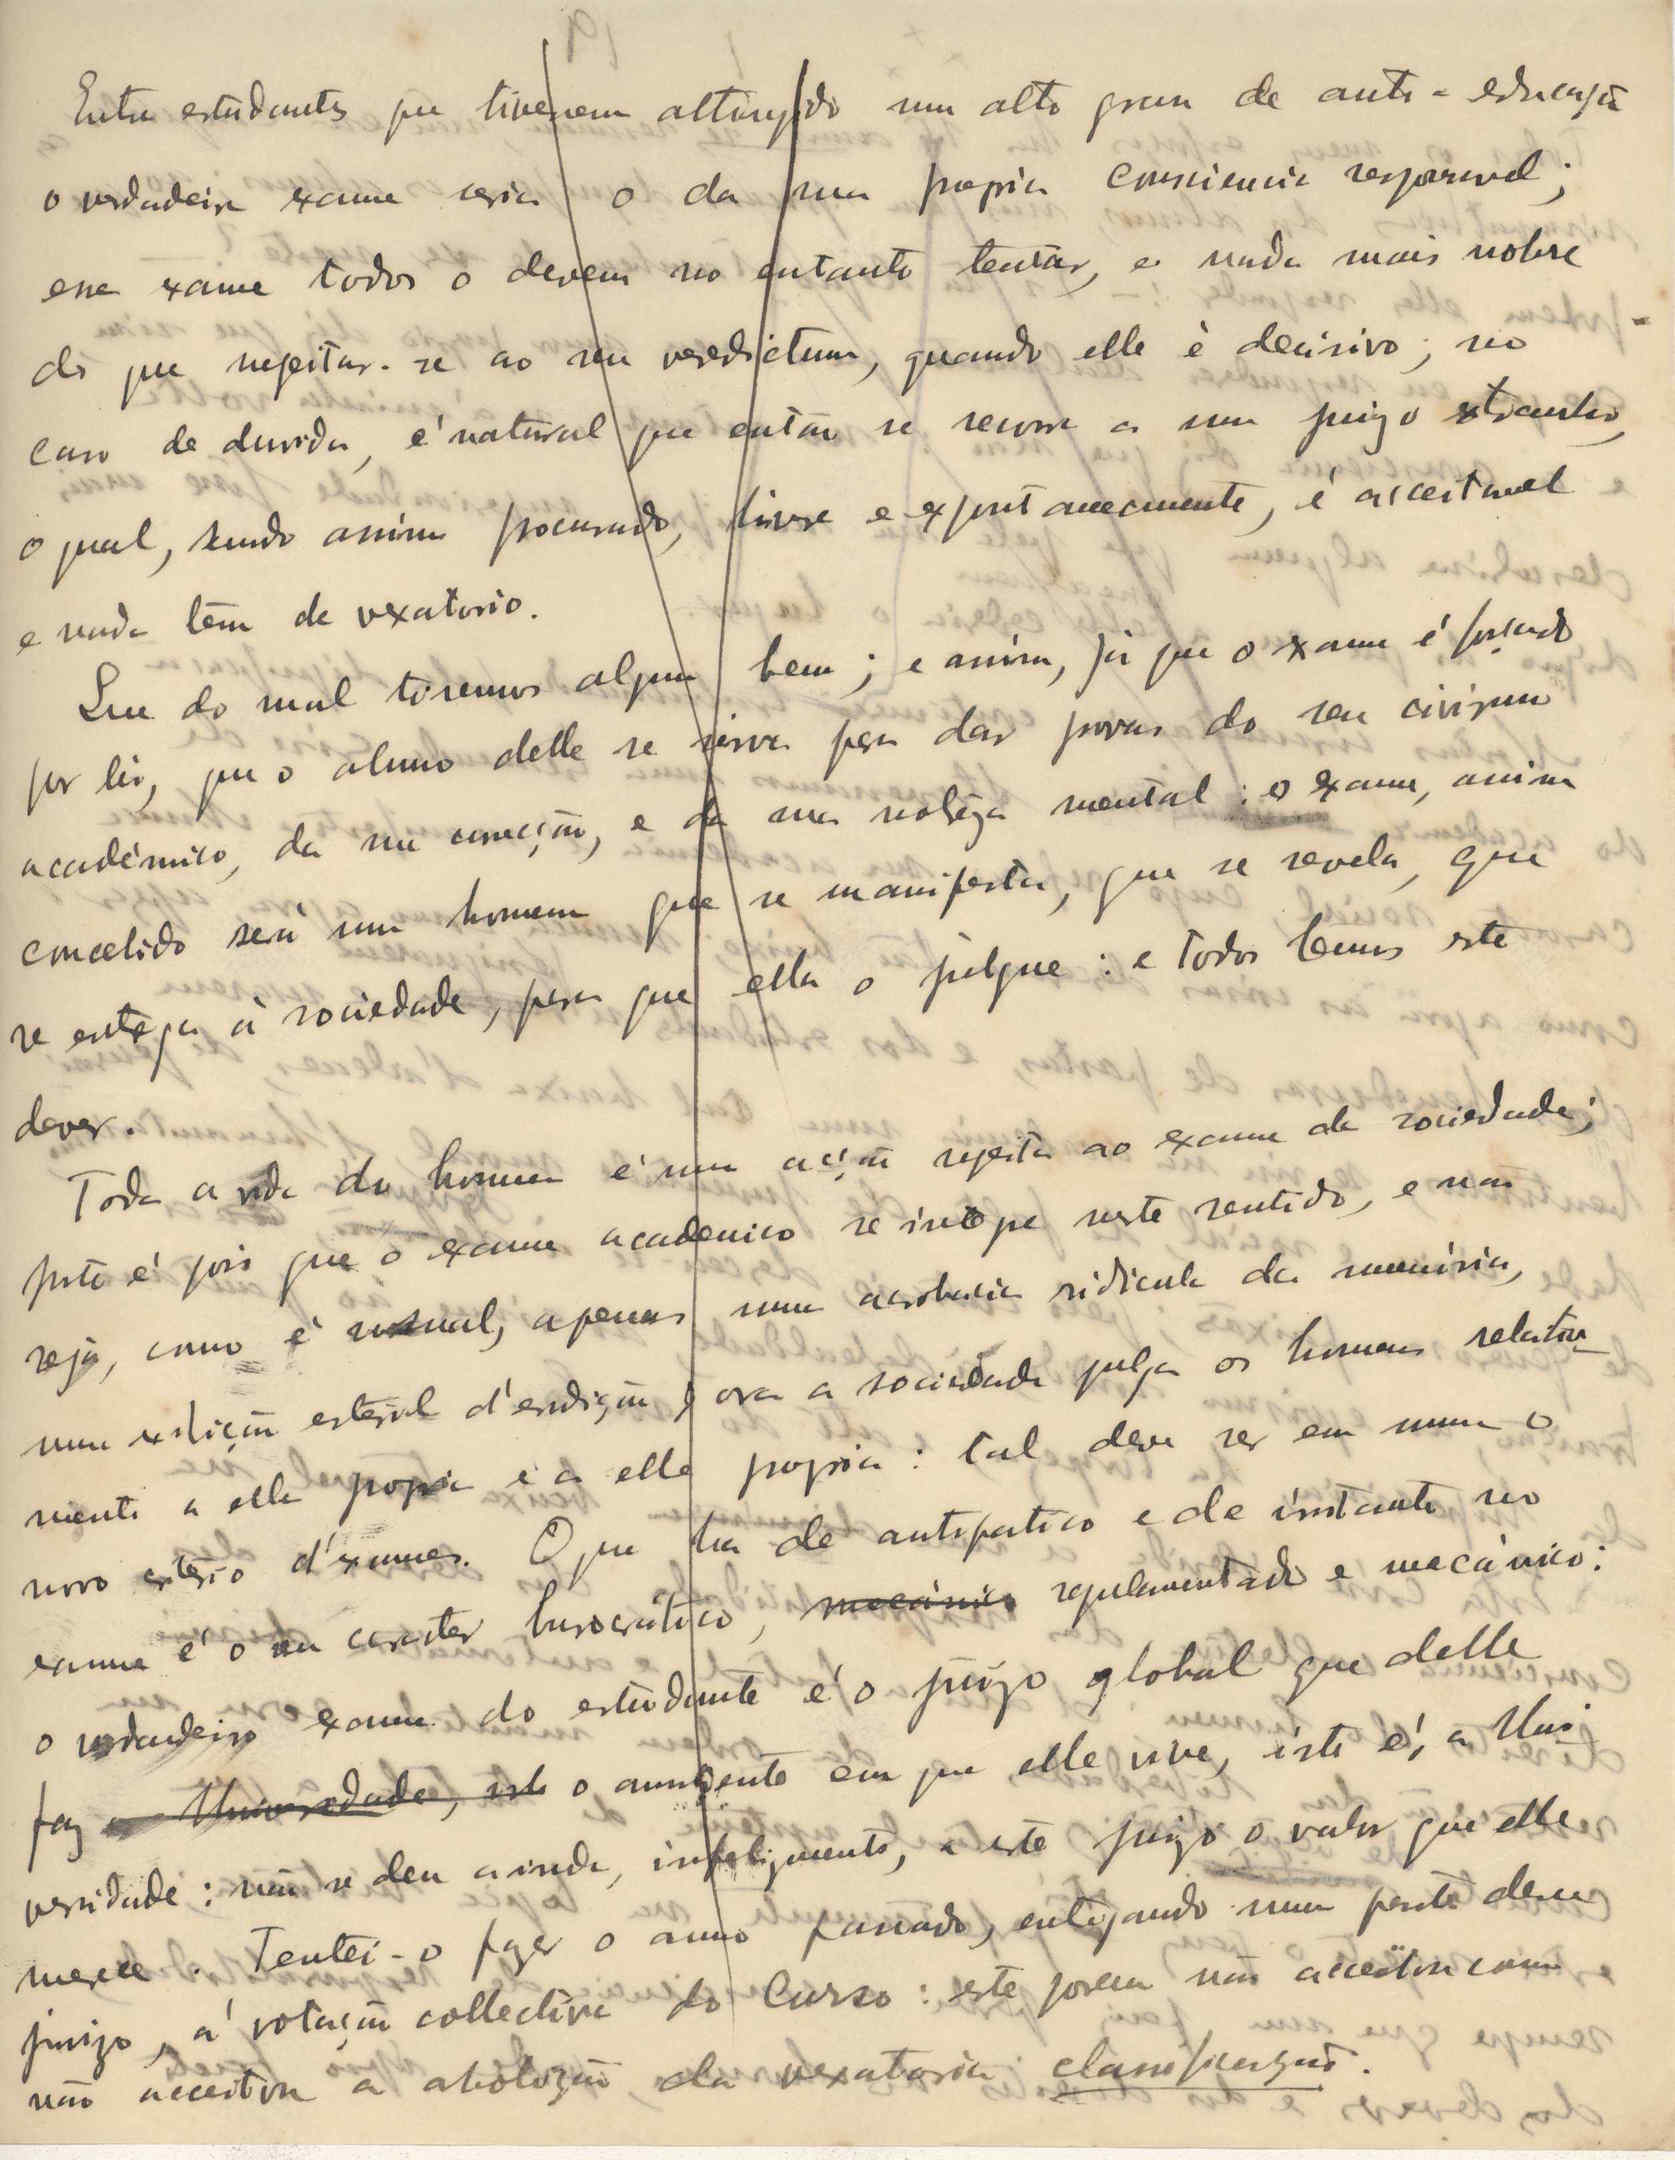 Entre estudantes que tivessem attingido um alto grau de auto-educação
o verdadeiro exame seria o da sua propria consciencia responsavel;
esse exame todos o devem no entanto tentar, e nada mais nobre
do que sujeitar-se ao seu veredictum, quando elle è decisivo; no
caso de duvida, é natural que então se recorra a um juizo extranho,
o qual, sendo assim procurado, livre e expontaneamente, é acceitavel
e nada tem de vexatorio.
Que do mal tiremos algum bem; e assim, já que o exame é forçado
por lei, que o alumno delle se sirva para dar provas do seu civismo
académico, da sua correcção, e da sua nobreza mental: o exame, assim
concebido será um homem que se manifesta, que se revela, que
se entrega á sociedade, para que ella o julgue: e todos temos este
dever.
Toda a vida do homem é uma acção sujeita ao exame da sociedade;
justo é pois que o exame academico se integre neste sentido, e não
seja, como é usual, apenas uma acrobacia ridicula da memória,
uma exibição esteril d'erudição; ora a sociedade julga os homens relativa-
mente a ella propria e a elle proprio: tal deve ser em summa o
novo criterio d'exames. O que ha de antipatico e de irritante no
exame é o seu caracter burocrático, mecánico regulamentado e mecánico:
o verdadeiro exame do estudante é o juizo global que delle
faz a Universidade, isto o ambiente em que elle vive, isto é, a Uni-
versidade: não se deu ainda, infelizmente, a este juizo o valor que elle
merece. Tentei-o fazer o anno passado, entregando uma parte desse
juizo, á votação collectiva do Curso: este porem não acceitou como
não acceitou a abolição da vexatoria classificação.